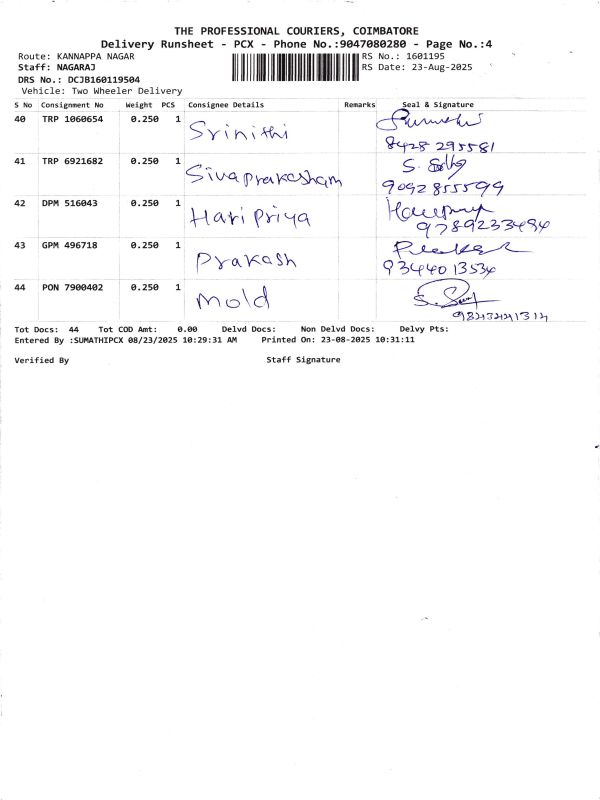 THE PROFESSIONAL COURIERS, COIMBATORE
Delivery Runsheet - PCX - Phone No.:9047080280 - Page No.:4
Route: KANNAPPA NAGAR RS No.: 1601195
Staff: NAGARAJ RS Date: 23-Aug-2025
DRS No.: DCJB160119504
Vehicle: Two Wheeler Delivery
S No Consignment No Weight PCS Consignee Details Remarks Seal & Signature
40 TRP 1060654 0.250 1 Srinithi
8428 295581
41 TRP 6921682 0.250 1 Sivaprakasham S.
9092855599
42 DPM 516043 0.250 1 Hari Priya Haripriya
9789233494
43 GPM 496718 0.250 1 Prakash
9344013534
44 PON 7900402 0.250 1 Mold
Tot Docs: 44 Tot COD Amt: 0.00 Delvd Docs: Non Delvd Docs: Delvy Pts:
Entered By :SUMATHIPCX 08/23/2025 10:29:31 AM Printed On: 23-08-2025 10:31:11
Verified By Staff Signature